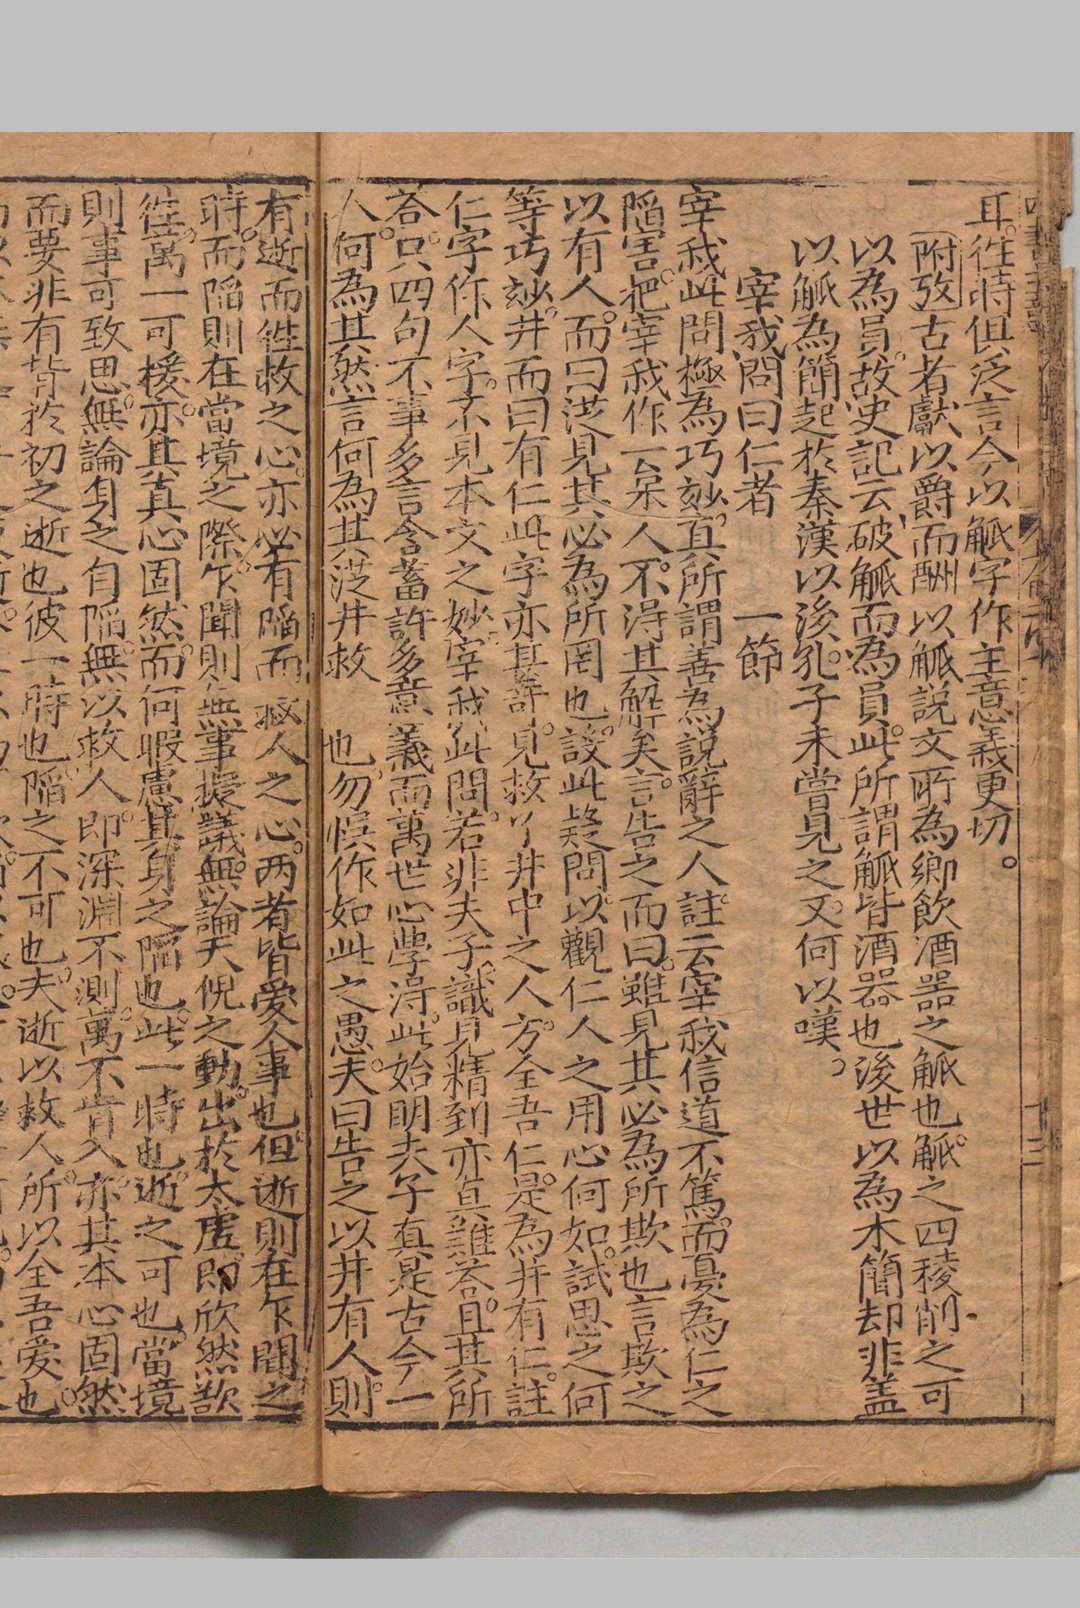 耳徃時俱泛言今以觚字作主意義更切。
附攷古者獻以爵而酬以觚説文所為鄉飲酒器之觚也觚之四稜削之可
以為員故史記云破觚而為員此所謂觚皆酒器也後世以為木簡却非盖
以觚為簡起於秦漢以後孔子未嘗見之又何以嘆。
宰我問曰仁者　一節
宰我此問極為巧玅真所謂善為説辭之人註云宰我信道不篤而憂為仁之
陷害把宰我作一呆人不得其解矣言告之而曰雖見其必為所欺也言欺之
以有人而曰從見其必為所罔也設此疑問以觀仁人之用心何如試思之何
等巧玅井而曰有仁此字亦甚許見救丫井中之人方全吾仁是為井有仁註
仁字作人字不見本文之妙宰我此問若非夫子識見精到亦真難荅且其所
荅只四句不事多言含蓄許多意義而萬世心學淂此始明夫子真是古今一
人何為其然言何為其從井救　也勿悞作如此之愚夫曰告之以井有人則
有逝而徃救之心亦必有陷而救人之心两者皆愛人事也但逝則在乍聞之
時而陷則在當境之際乍聞則無事擬議無論天倪之動出於太虛即欣然歆
徃萬一可援亦其真心固然而何暇慮其身之陷也此一時也逝之可也當境
則事可致思無論身之自陷無以救人即深淵不測萬不肯入亦其本心固然
而要非有背於初之逝也彼一時也陷之不可也夫逝以救人所以全吾愛也